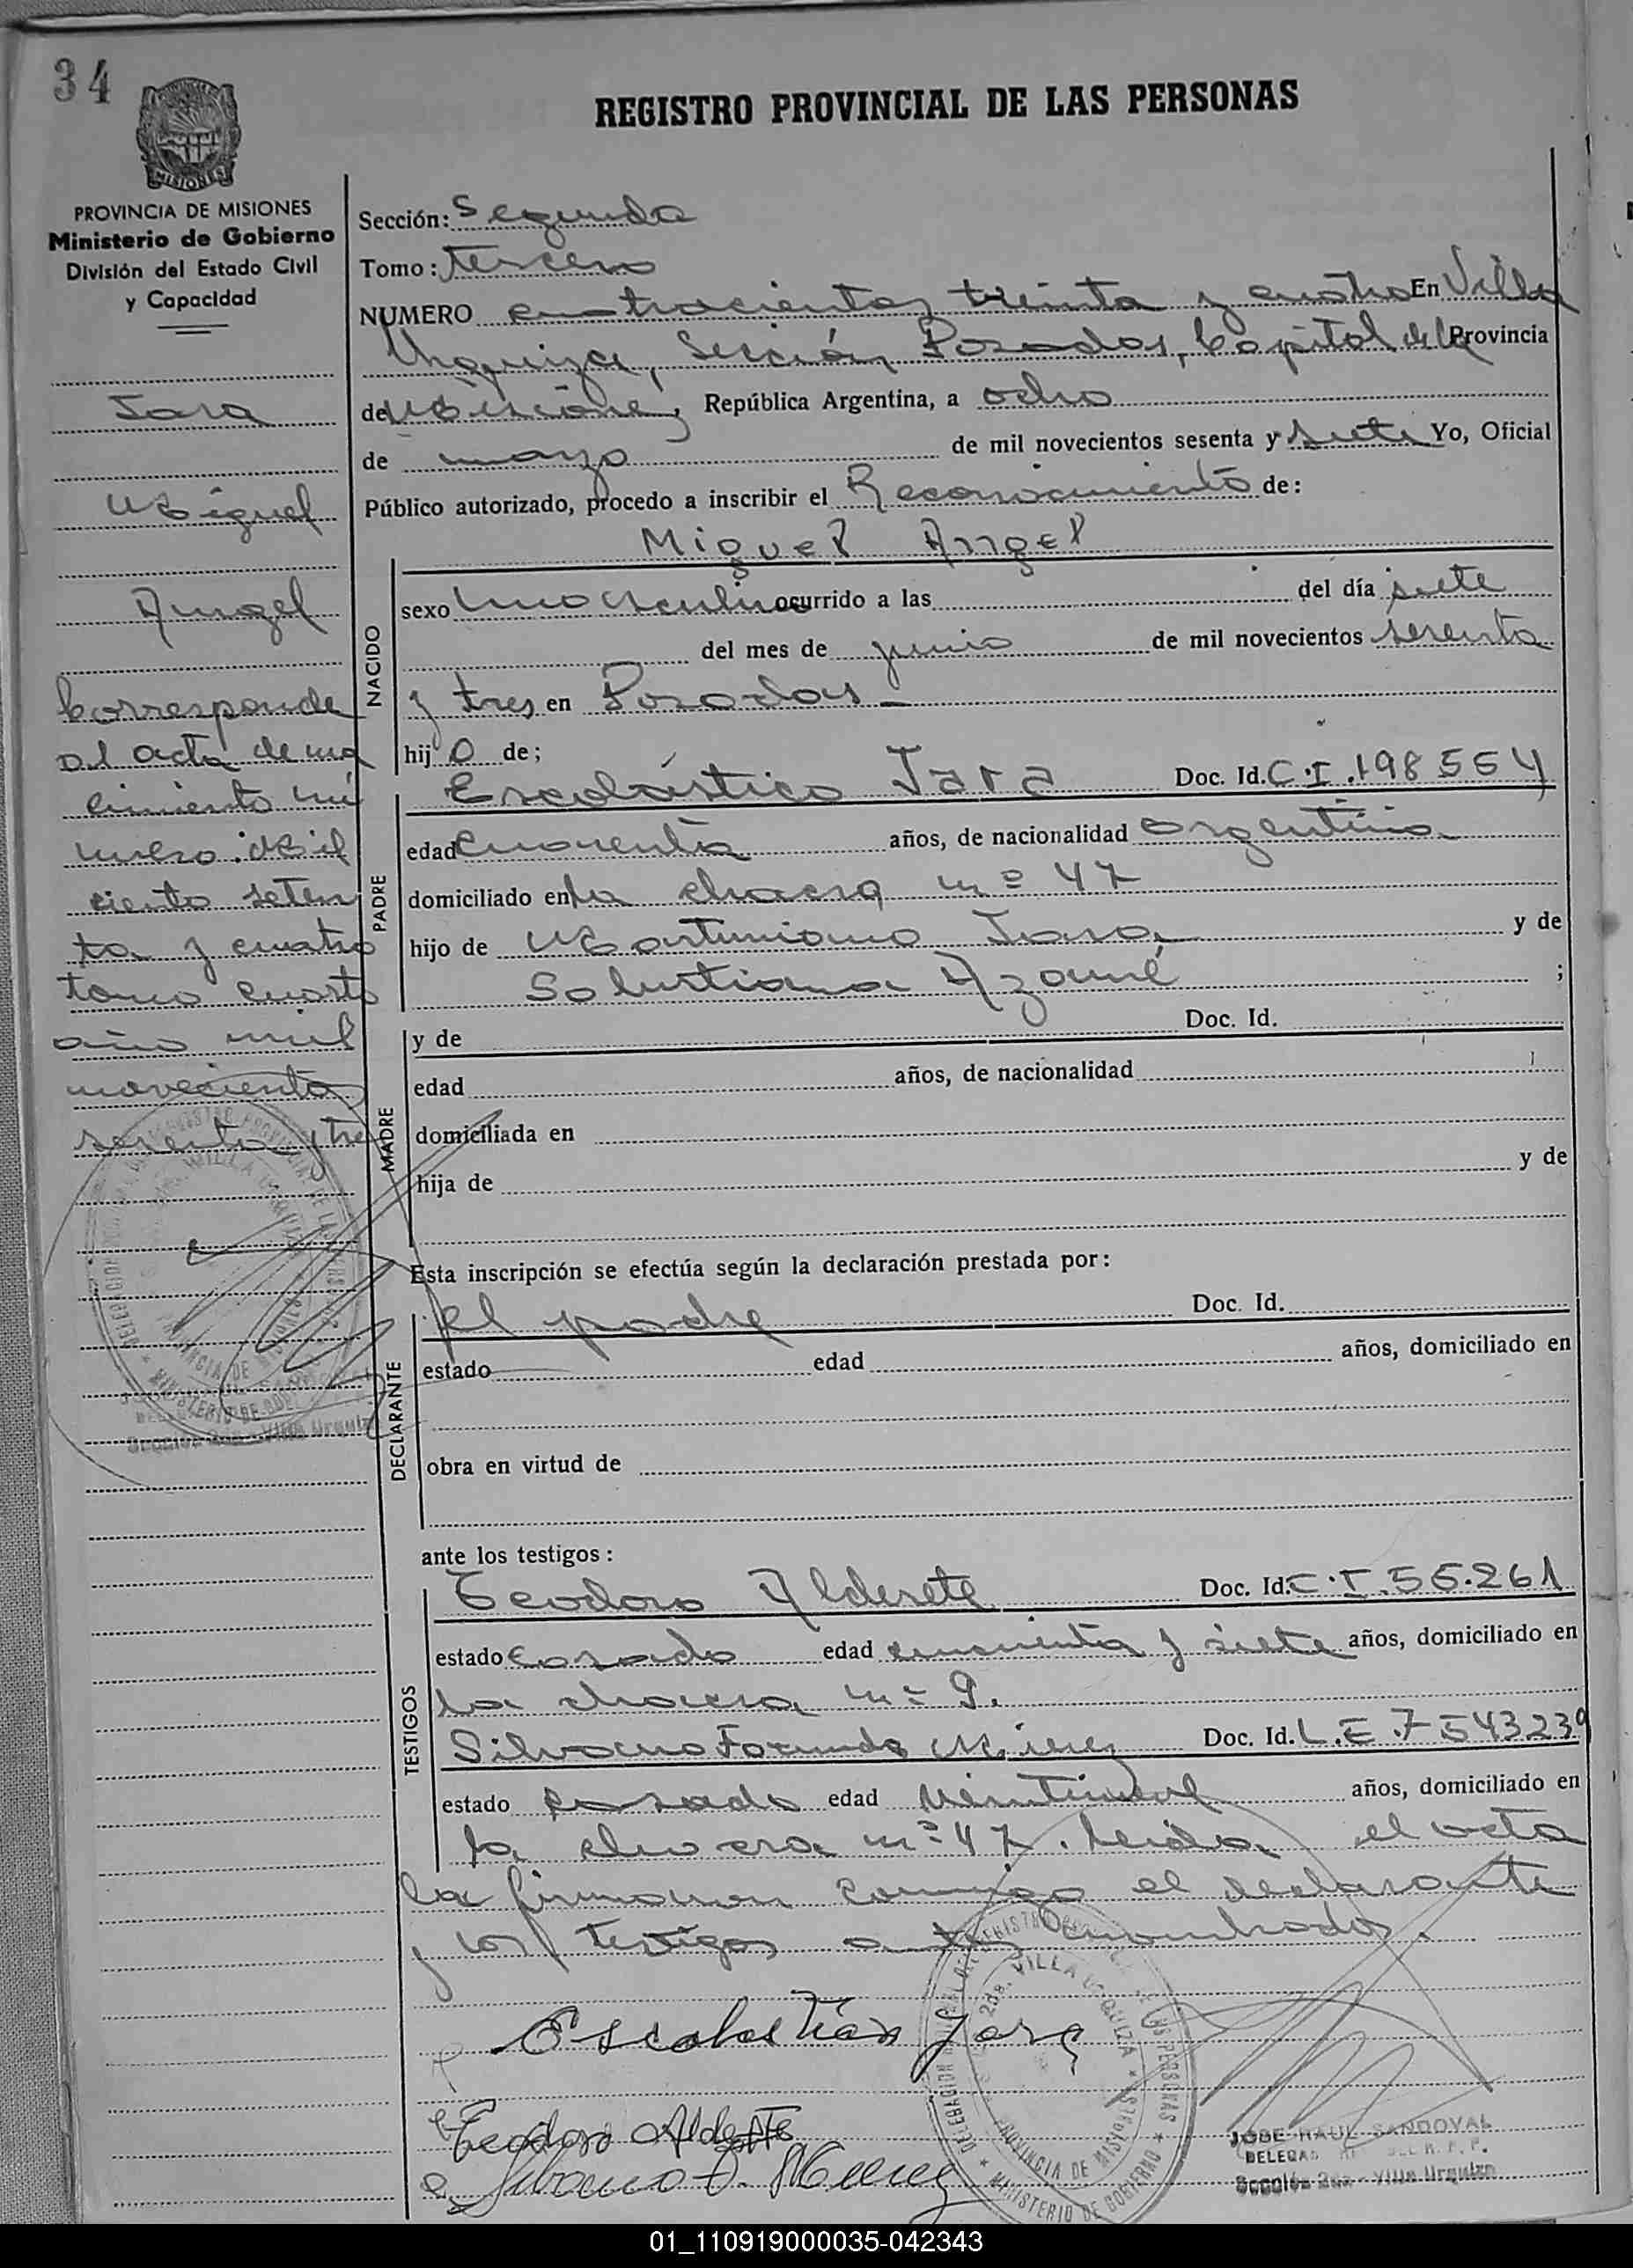 34
REGISTRO PROVINCIAL DE LAS PERSONAS
MISIONES
PROVINCIA DE MISIONES
Ministerio de Gobierno
División del Estado Civil
y Capacidad
Jara
Miguel
Angel
Corresponde
al acta de na
cimiento nú
mero: Mil
ciento seten
ta y cuatro
tomo cuarto
año mil
novecientos
sesenta y tres
Sección: Segunda
Tomo: Tercero
NUMERO cuatrocientos treinta y cuatro En Villa
Urquiza, Sección Posadas, Capital de la Provincia
de Misiones, República Argentina, a ocho
de mayo de mil novecientos sesenta y siete Yo, Oficial
Público autorizado, procedo a inscribir el Reconocimiento de:
Miguel Angel
NACIDO
sexo masculino ocurrido a las del día siete
del mes de junio de mil novecientos sesenta
y tres en Posadas
hij o de;
PADRE
Escolástico Jara Doc. Id. C.I. 198554
edad cuarenta años, de nacionalidad argentina
domiciliado en la chacra nº 47
hijo de Martiniano Jara y de
Salustiana Azamé ;
MADRE
y de Doc. Id.
edad años, de nacionalidad
domiciliada en
hija de y de
Esta inscripción se efectúa según la declaración prestada por:
DECLARANTE
El padre Doc. Id.
estado edad años, domiciliado en
obra en virtud de
ante los testigos:
TESTIGOS
Teodoro Alderete Doc. Id. C.I. 55.261
estado casado edad cincuenta y siete años, domiciliado en
la chacra nº 9.
Silvano Facundo Doc. Id. L.E. 7543239
estado casado edad años, domiciliado en
la chacra nº 47. Leída el acta
la firmaron conmigo el declarante
y los testigos antes nombrados.
Jara
Teodoro
JOSE RAUL SANDOVAL
DELEGADO DEL R. P. P.
Sección 2da - Villa Urquiza
01_110919000035-042343